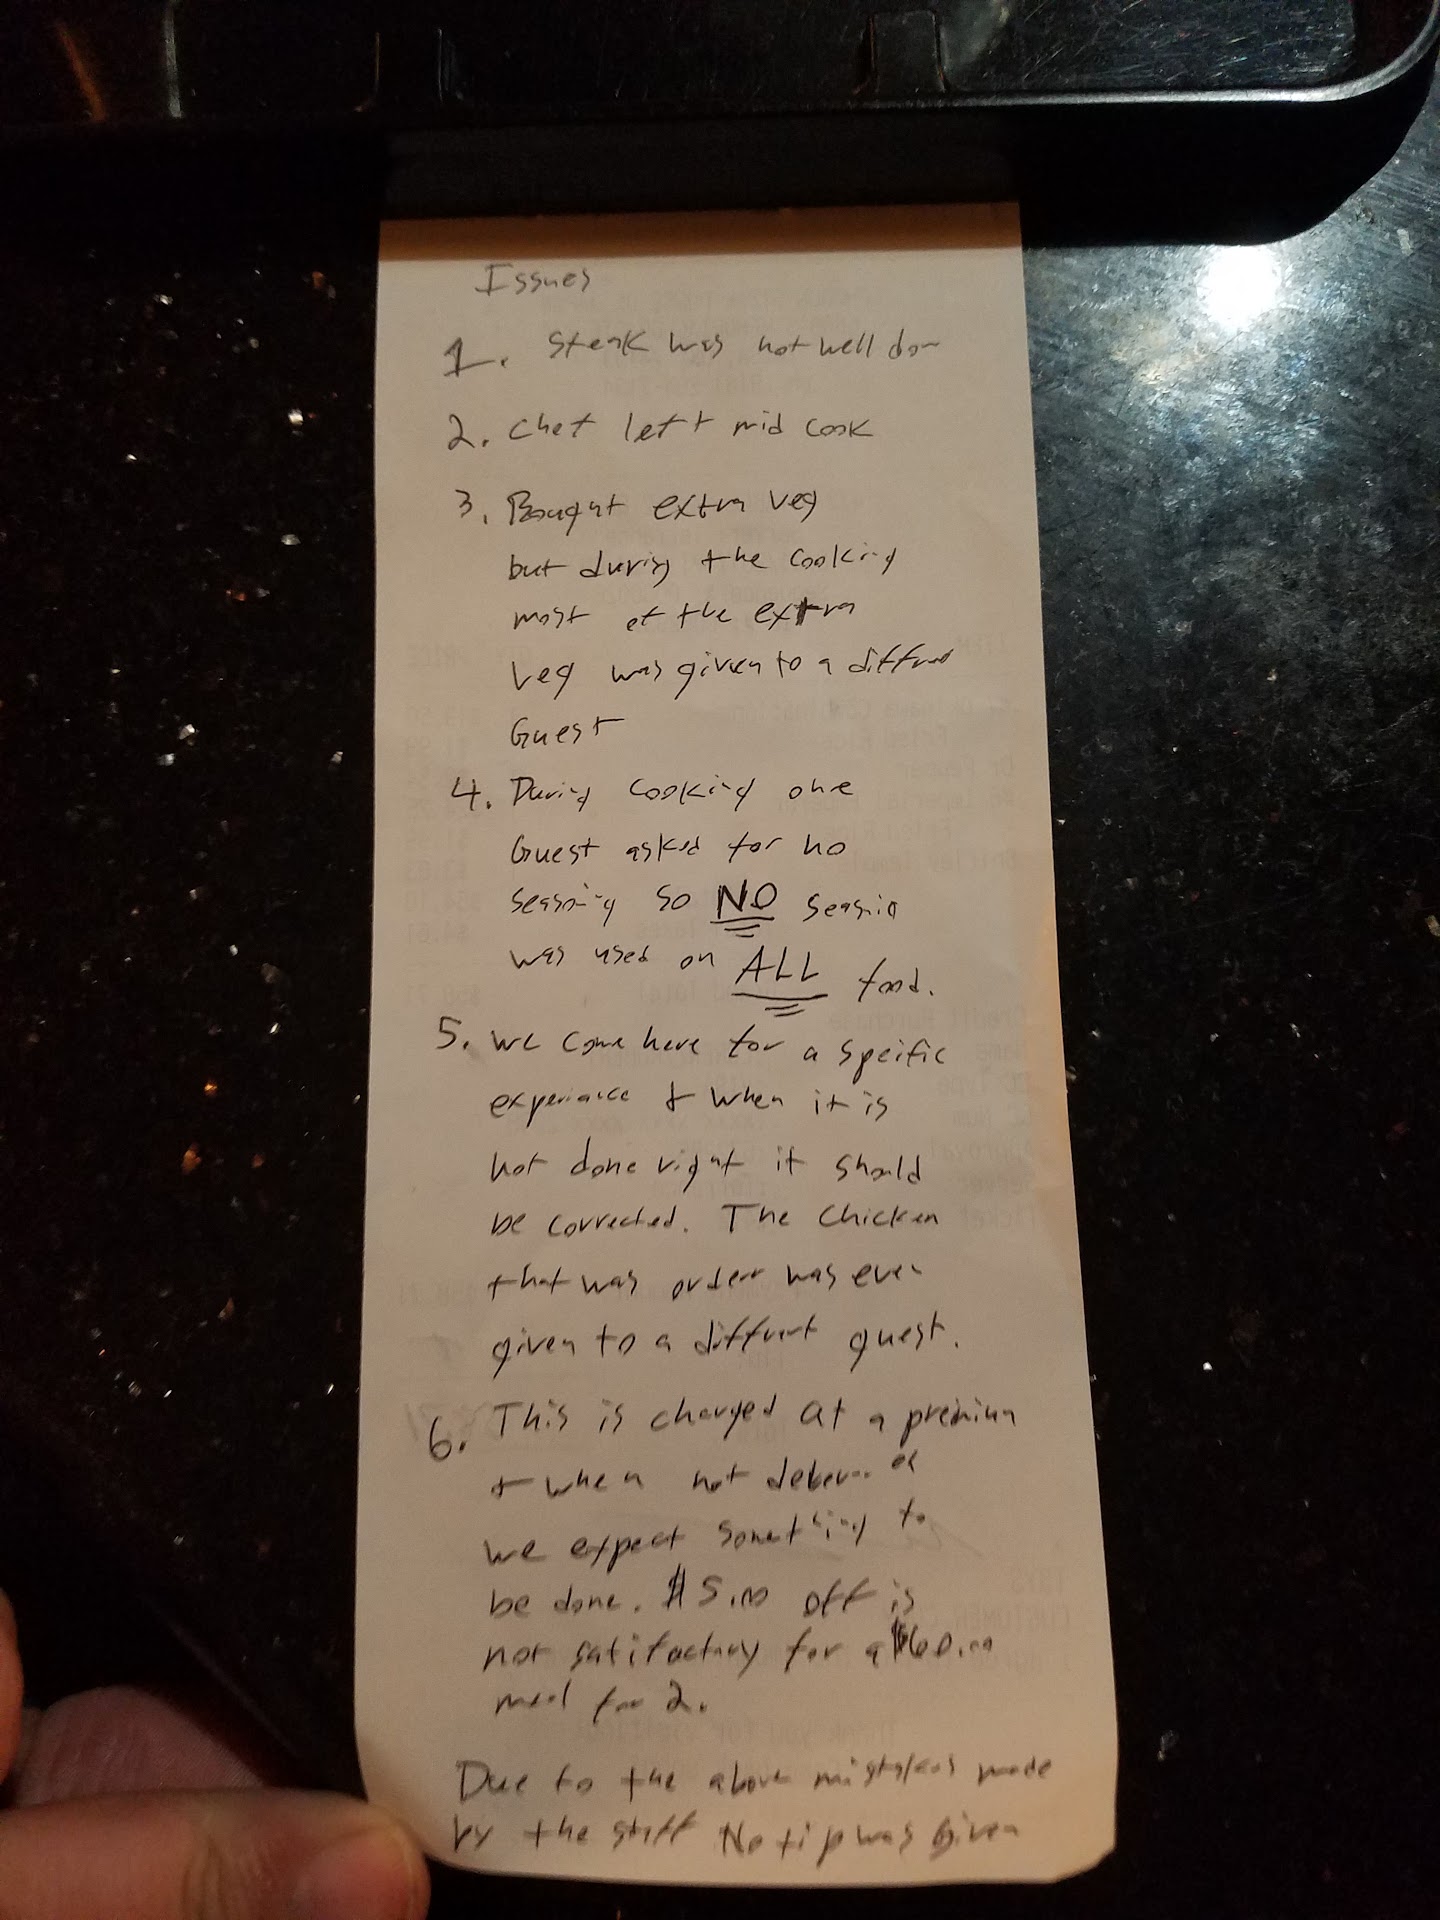 Issues
1. Steak was not well don
2. Chef left mid cook
3. Bought extra veg
but during the cooking
most of the extra
veg was given to a diffrent
Guest
4. During cooking one
Guest asked for no
seasoning so NO seasoning
was used on ALL food.
5. We come here for a speific
experiance + when it is
not done right it should
be corrected. The Chicken
that was order was even
given to a diffrent guest.
6. This is charged at a premium
+ when not
we expect something to
be done. $5.00 off is
not satifactory for a $60.00
meal for 2.
Due to the above mistakes made
by the staff No tip was Given